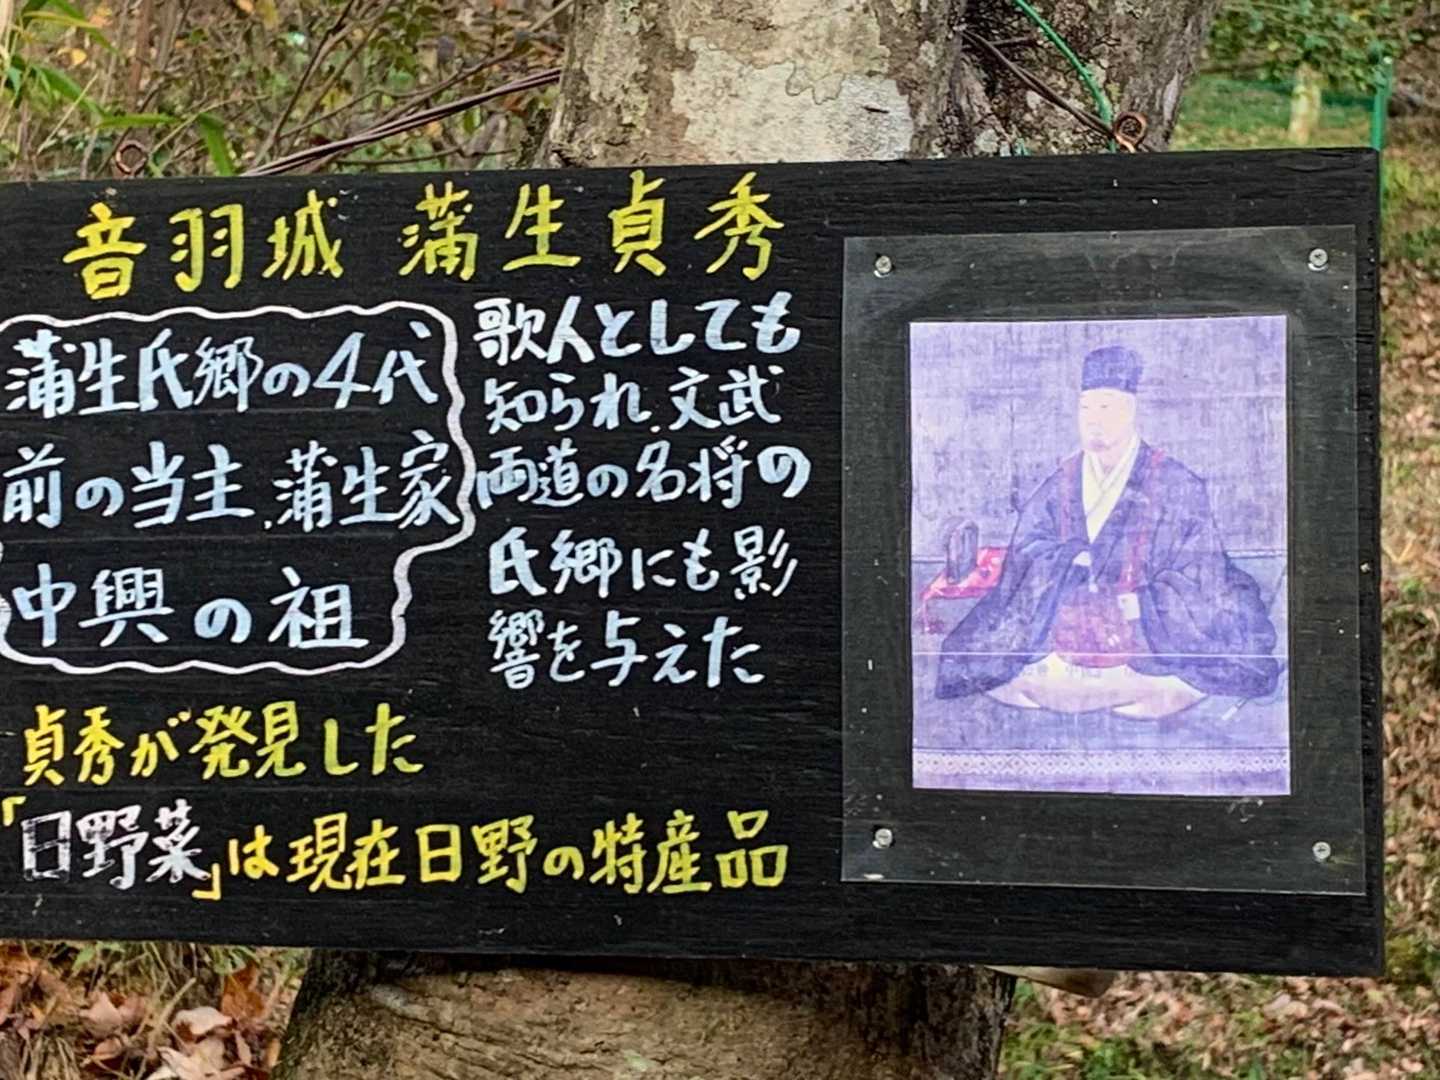 音羽城 蒲生貞秀
蒲生氏郷の4代
前の当主、蒲生家
中興の祖
歌人としても
知られ、文武
両道の名将の
氏郷にも影
響を与えた
貞秀が発見した
「日野菜」は現在日野の特産品